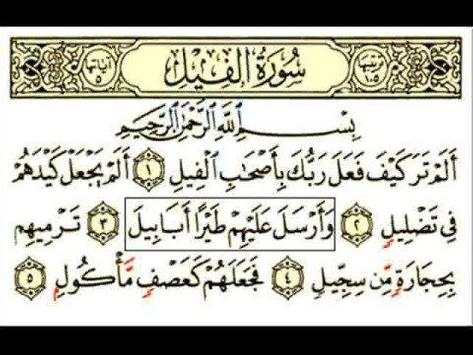 ترتيبها ١٠٥ سُورَةُ الفِيل آياتها ٥
بِسْمِ اللَّهِ الرَّحْمَنِ الرَّحِيمِ
أَلَمْ تَرَ كَيْفَ فَعَلَ رَبُّكَ بِأَصْحَابِ الْفِيلِ ١ أَلَمْ يَجْعَلْ كَيْدَهُمْ
فِي تَضْلِيلٍ ٢ وَأَرْسَلَ عَلَيْهِمْ طَيْرًا أَبَابِيلَ ٣ تَرْمِيهِم
بِحِجَارَةٍ مِّن سِجِّيلٍ ٤ فَجَعَلَهُمْ كَعَصْفٍ مَّأْكُولٍ ٥